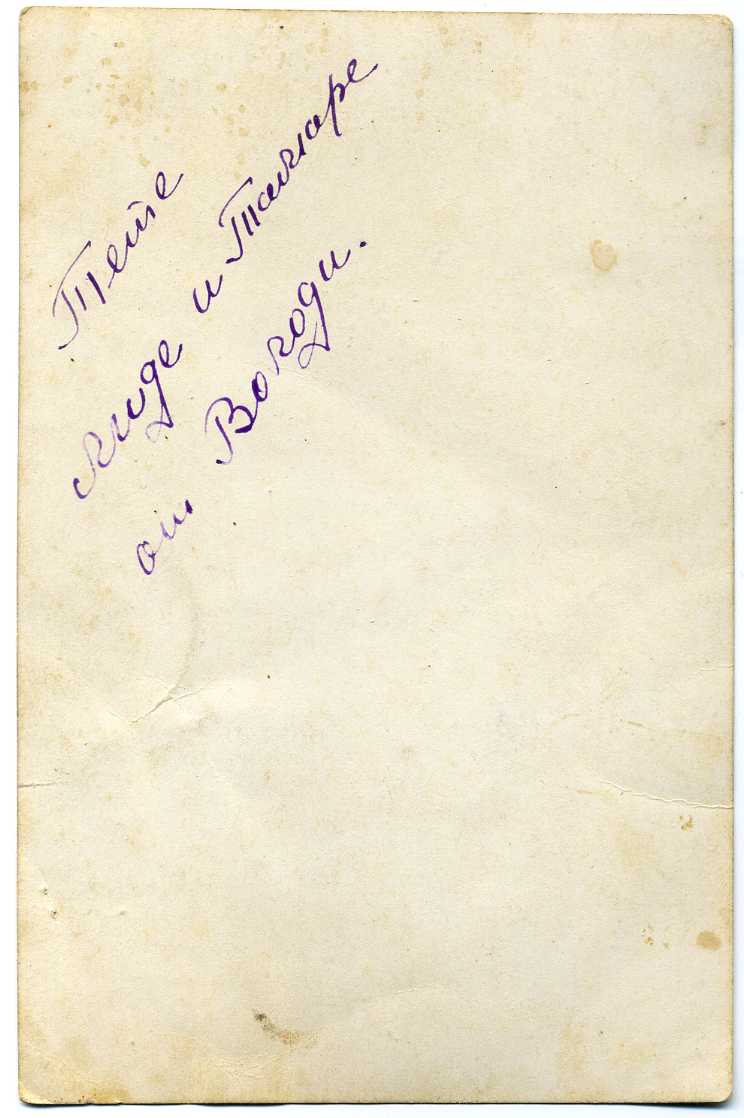 Тете
Лиде и Тамаре
от Володи.